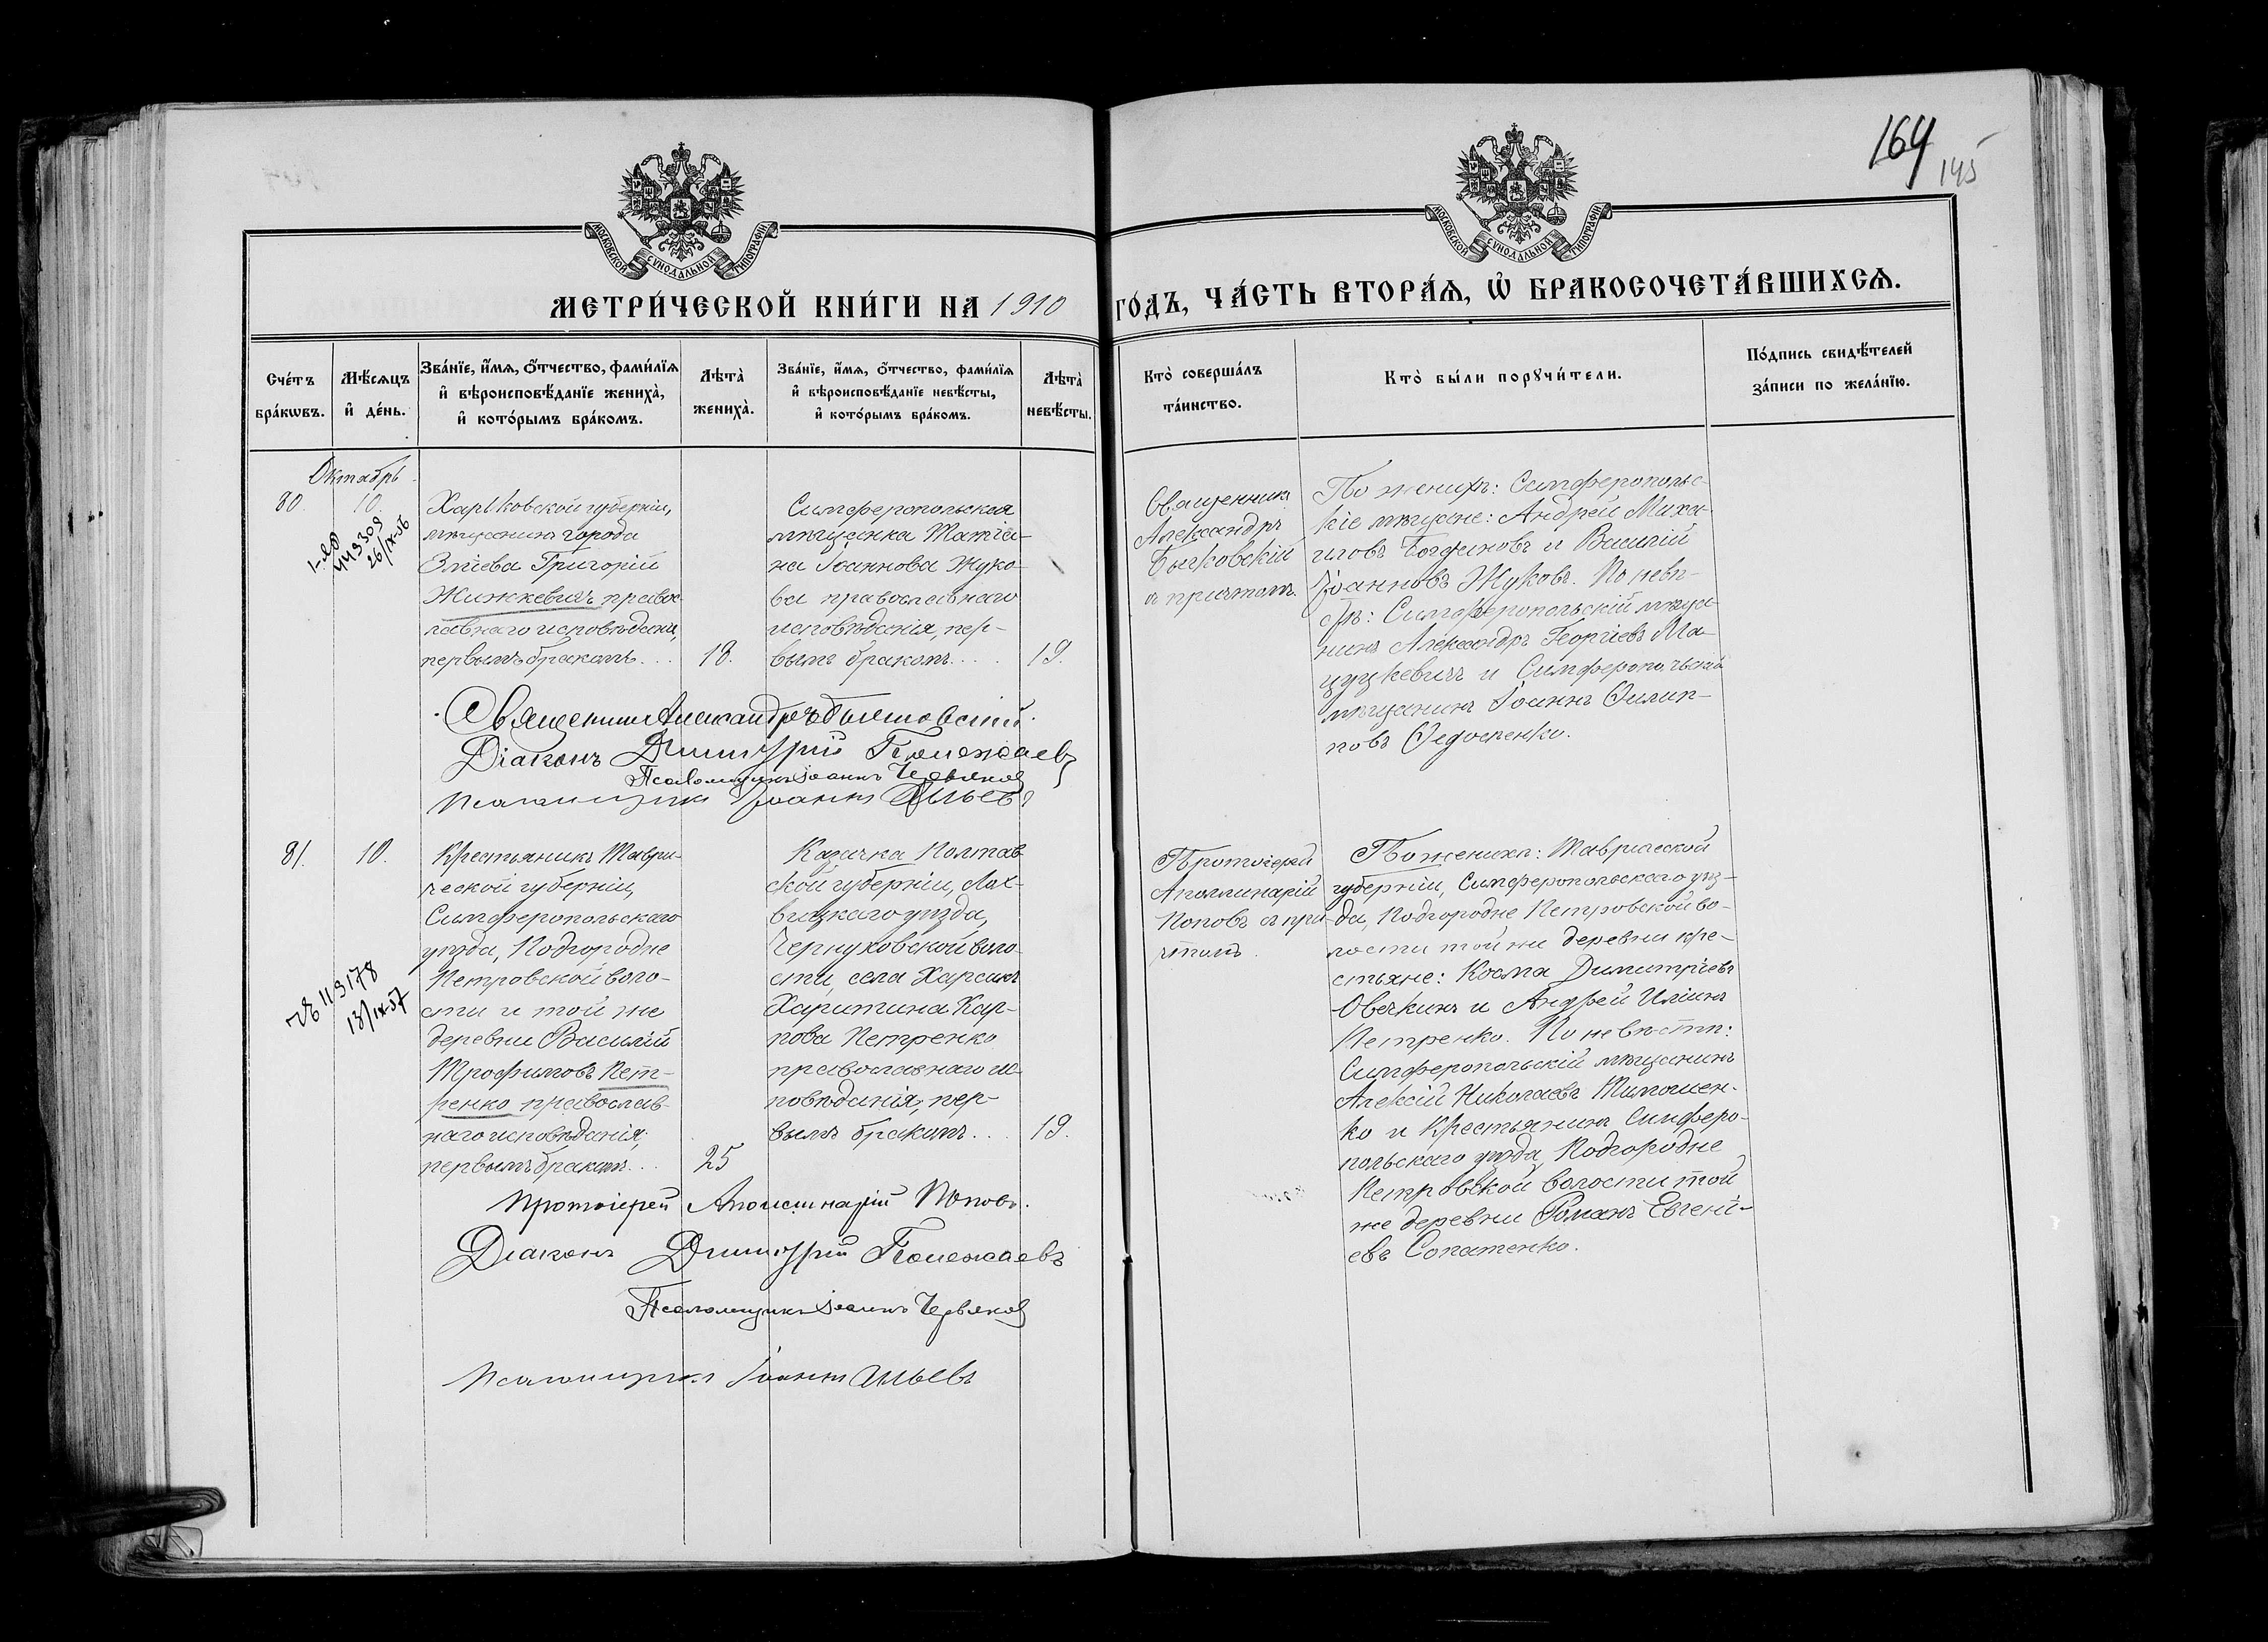 164
145
МОСКОВСКОЙ СѴНОДАЛЬНОЙ ТИПОГРАФІИ
МОСКОВСКОЙ СѴНОДАЛЬНОЙ ТИПОГРАФІИ
МЕТРИ́ЧЕСКОЙ КНИ́ГИ НА 1910 ГО́ДЪ, ЧА́СТЬ ВТОРА́Ѧ, Ѽ БРАКОСОЧЕТА́ВШИХСѦ.
Сче́тъ
бра́кωвъ.
Мѣ́сѧцъ
и҆ де́нь.
Зва́нїе, и҆́мѧ, ѻ҆́тчество, фами́лїѧ
и҆ вѣроисповѣ́данїе жениха̀,
и҆ кото́рымъ бра́комъ.
Лѣта̀
жениха̀.
Зва́нїе, и҆́мѧ, ѻ҆́тчество, фами́лїѧ
и҆ вѣроисповѣ́данїе невѣ́сты,
и҆ кото́рымъ бра́комъ.
Лѣта̀
невѣ́сты.
Кто̀ соверша́лъ
та́инство.
Кто̀ бы́ли порꙋчи́тели.
По́дпись свидѣ́телей
за́писи по жела́нїю.
Октябрь
80.
10.
449309
26/IX-56
Харьковской губерніи,
мѣщанинъ города
Зміева Григорій
Жижкевичъ правос-
лавнаго исповѣданія,
первымъ бракомъ...
18.
Симферопольская
мѣщанка Татіа-
на Іоаннова Жуко-
ва православнаго
исповѣданія, пер-
вымъ бракомъ....
19.
Священникъ
Александръ
съ причтомъ.
По женихѣ: Симферопольс-
кіе мѣщане: Андрей Миха-
иловъ и Василій
Іоанновъ Жуковъ. По невѣ-
стѣ: Симферопольскій мѣща-
нинъ Александръ Георгіевъ Ма-
цуцкевичъ и Симферопольскій
мѣщанинъ Іоаннъ Филип-
повъ Федосенко.
Священникъ Александръ
Діаконъ Димитрій Полежаевъ
Псаломщикъ Іоаннъ Червяковъ
Псаломщикъ Іоаннъ Ильевъ
81.
10.
113178
13/IX-57
Крестьянинъ Таври-
ческой губерніи,
Симферопольскаго
уѣзда, Подгородне
Петровской воло-
сти и той же
деревни Василій
Трофимовъ Пет-
ренко православ-
наго исповѣданія,
первымъ бракомъ...
25
Казачка Полтав-
ской губерніи, Лох-
вицкаго уѣзда,
Чернуховской воло-
сти, села Харсикъ
Харитина Кар-
пова Петренко
православнаго ис-
повѣданія, пер-
вымъ бракомъ...
19.
Протоіерей
Аполлинарій
Поповъ съ при-
чтомъ.
По женихѣ: Таврической
губерніи, Симферопольскаго уѣз-
да, Подгородне Петровской во-
лости той же деревни кре-
стьяне: Косма Димитріевъ
Овечкинъ и Андрей Иліинъ
Петренко. По невѣстѣ:
Симферопольскій мѣщанинъ
Алексій Николаевъ Тимошен-
ко и крестьянинъ Симферо-
польскаго уѣзда Подгородне
Петровской волости той
же деревни Романъ Евгені-
евъ Сопатенко.
Протоіерей Аполлинарій Поповъ.
Діаконъ Димитрій Полежаевъ
Псаломщикъ Іоаннъ Червяковъ
Псаломщикъ Іоаннъ Ильевъ